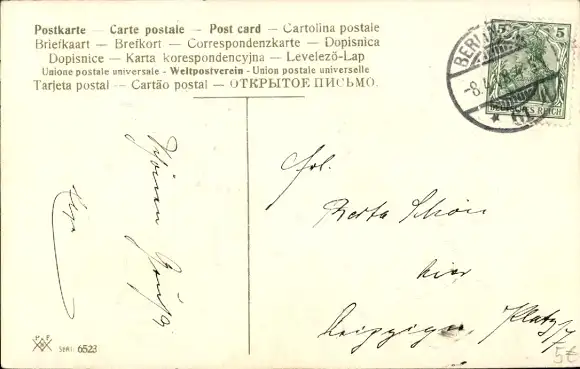 Postkarte – Carte postale – Post card – Cartolina postale
Briefkaart – Brefkort – Correspondenzkarte – Dopisnica
Dopisnice – Karta korespondencyjna – Levelező-Lap
Unione postale universale - Weltpostverein - Union postale universelle
Tarjeta postal – Cartão postal – ОТКРЫТОЕ ПИСЬМО.
5 5
BERLIN
DEUTSCHES REICH
Frl.
Berta Schön
hier
Leipziger Platz
5€
SERI: 6523